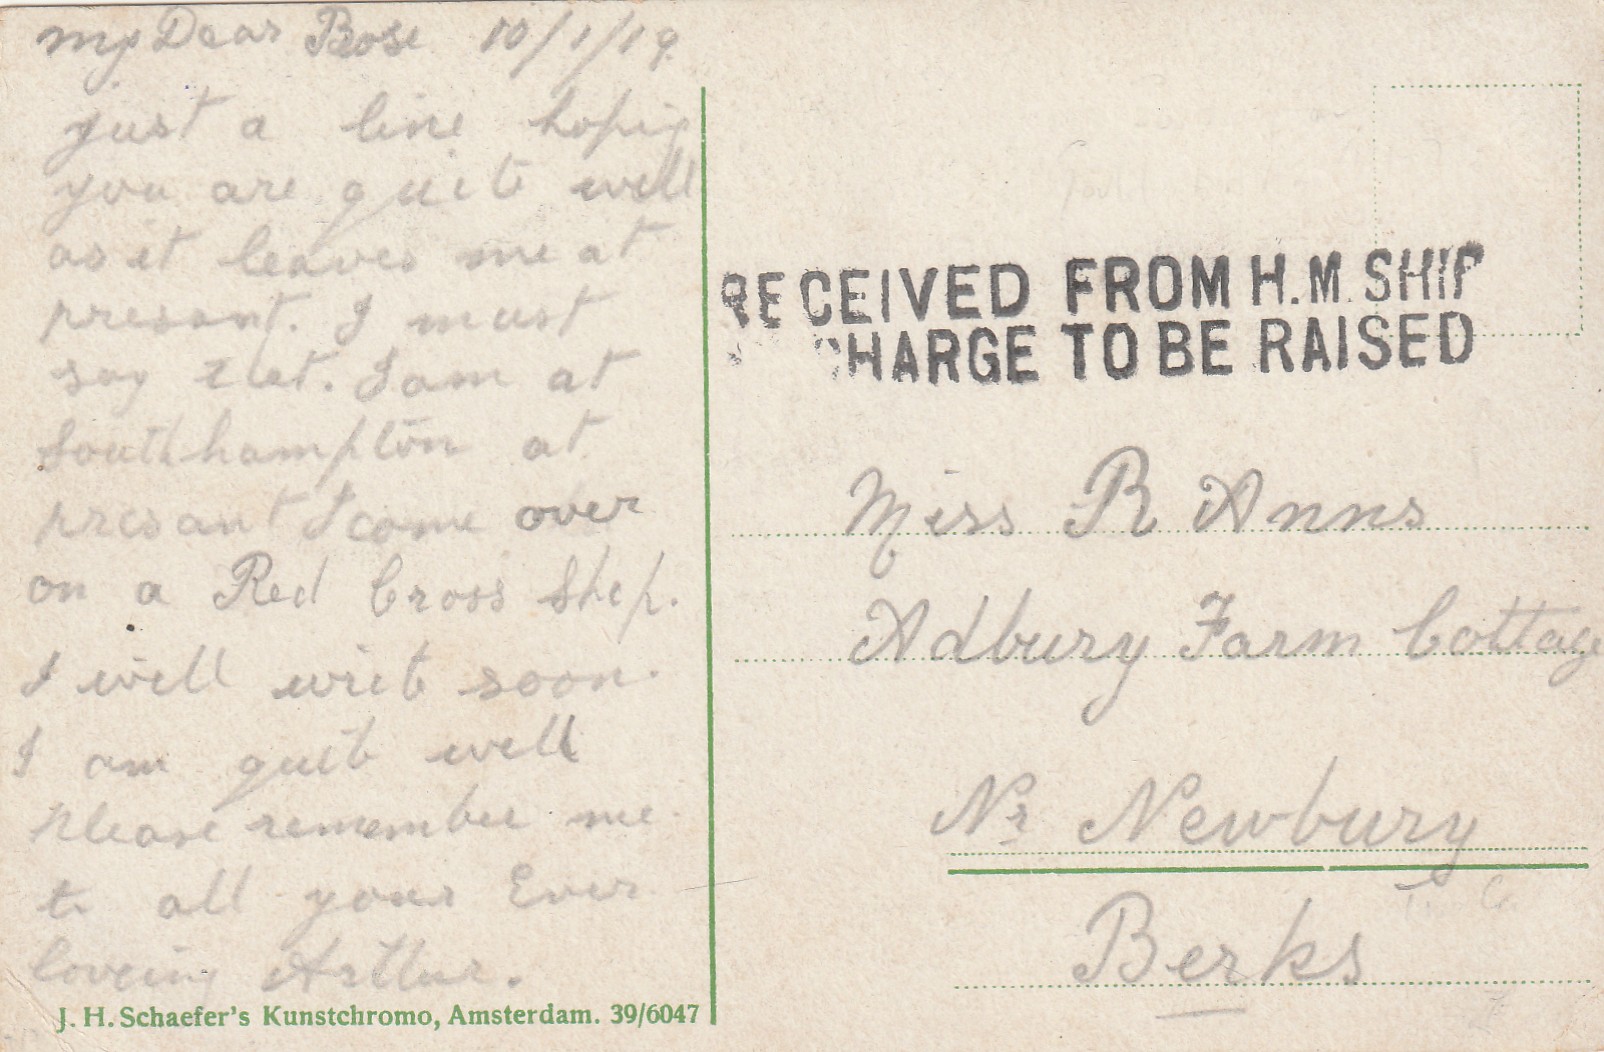 my Dear Rose 10/1/19.
just a line hoping
you are quite well
as it leaves me at
presant. I must
say that. I am at
Southhampton at
presant I come over
on a Red Cross Ship.
I will writ soon.
I am quit well
please remember me
to all yours Ever
loveing Arthur.
J. H. Schaefer's Kunstchromo, Amsterdam. 39/6047
RECEIVED FROM H.M. SHIP
CHARGE TO BE RAISED
Miss R Anns
Adbury Farm Cottage
Nr Newbury
Berks